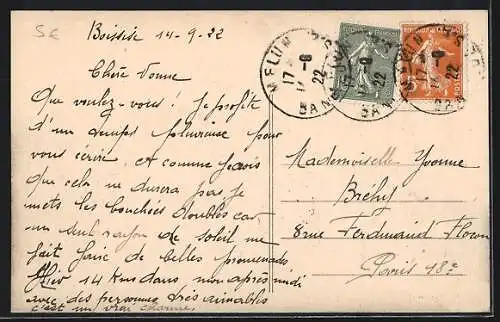 SE
Boissise 14-9-22
Chère Vonne
Que voulez-vous! Je profite
d'un temps pluvieux pour
vous écrire. Et comme je crois
que cela ne durera pas je
mets les bouchées doubles car
un seul rayon de soleil me
fait faire de belles promenades
Hier 14 km dans mon après midi
avec des personnes très aimables
c'est un vrai charme.
MELUN
17 -9 22
MELUN
22
Mademoiselle Yvonne
Bréhy
8 rue Ferdinand Flocon
Paris 18e